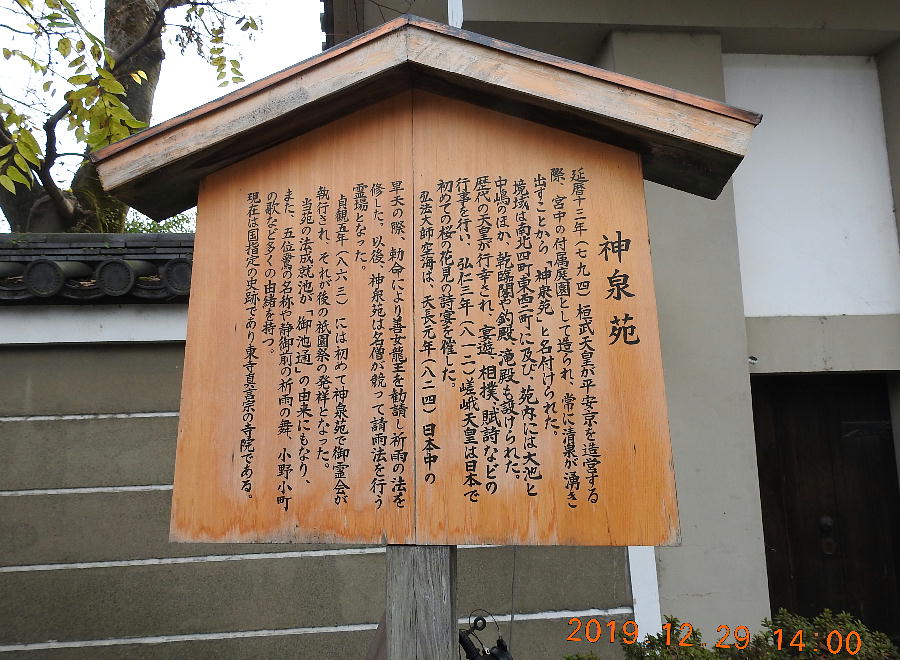 神泉苑
延暦十三年(七九四)桓武天皇が平安京を造営する
際、宮中の付属庭園として造られ、常に清泉が湧き
出すことから「神泉苑」と名付けられた。
境域は南北四町東西二町に及び、苑内には大池と
中嶋のほか、乾臨閣や釣殿、滝殿も設けられた。
歴代の天皇が行幸され、宴遊、相撲、賦詩などの
行事を行い、弘仁三年(八一二)嵯峨天皇は日本で
初めての桜の花見の詩宴を催した。
弘法大師空海は、天長元年(八二四)日本中の
旱天の際、勅命により善女龍王を勧請し祈雨の法を
修した。以後、神泉苑は名僧が競って請雨法を行う
霊場となった。
貞観五年(八六三)には初めて神泉苑で御霊会が
執行され、それが後の祇園祭の発祥となった。
当苑の法成就池が「御池通」の由来にもなり、
また、五位鷺の名称や静御前の祈雨の舞、小野小町
の歌など多くの由緒を持つ。
現在は国指定の史跡であり東寺真言宗の寺院である。
2019 12 29 14:00